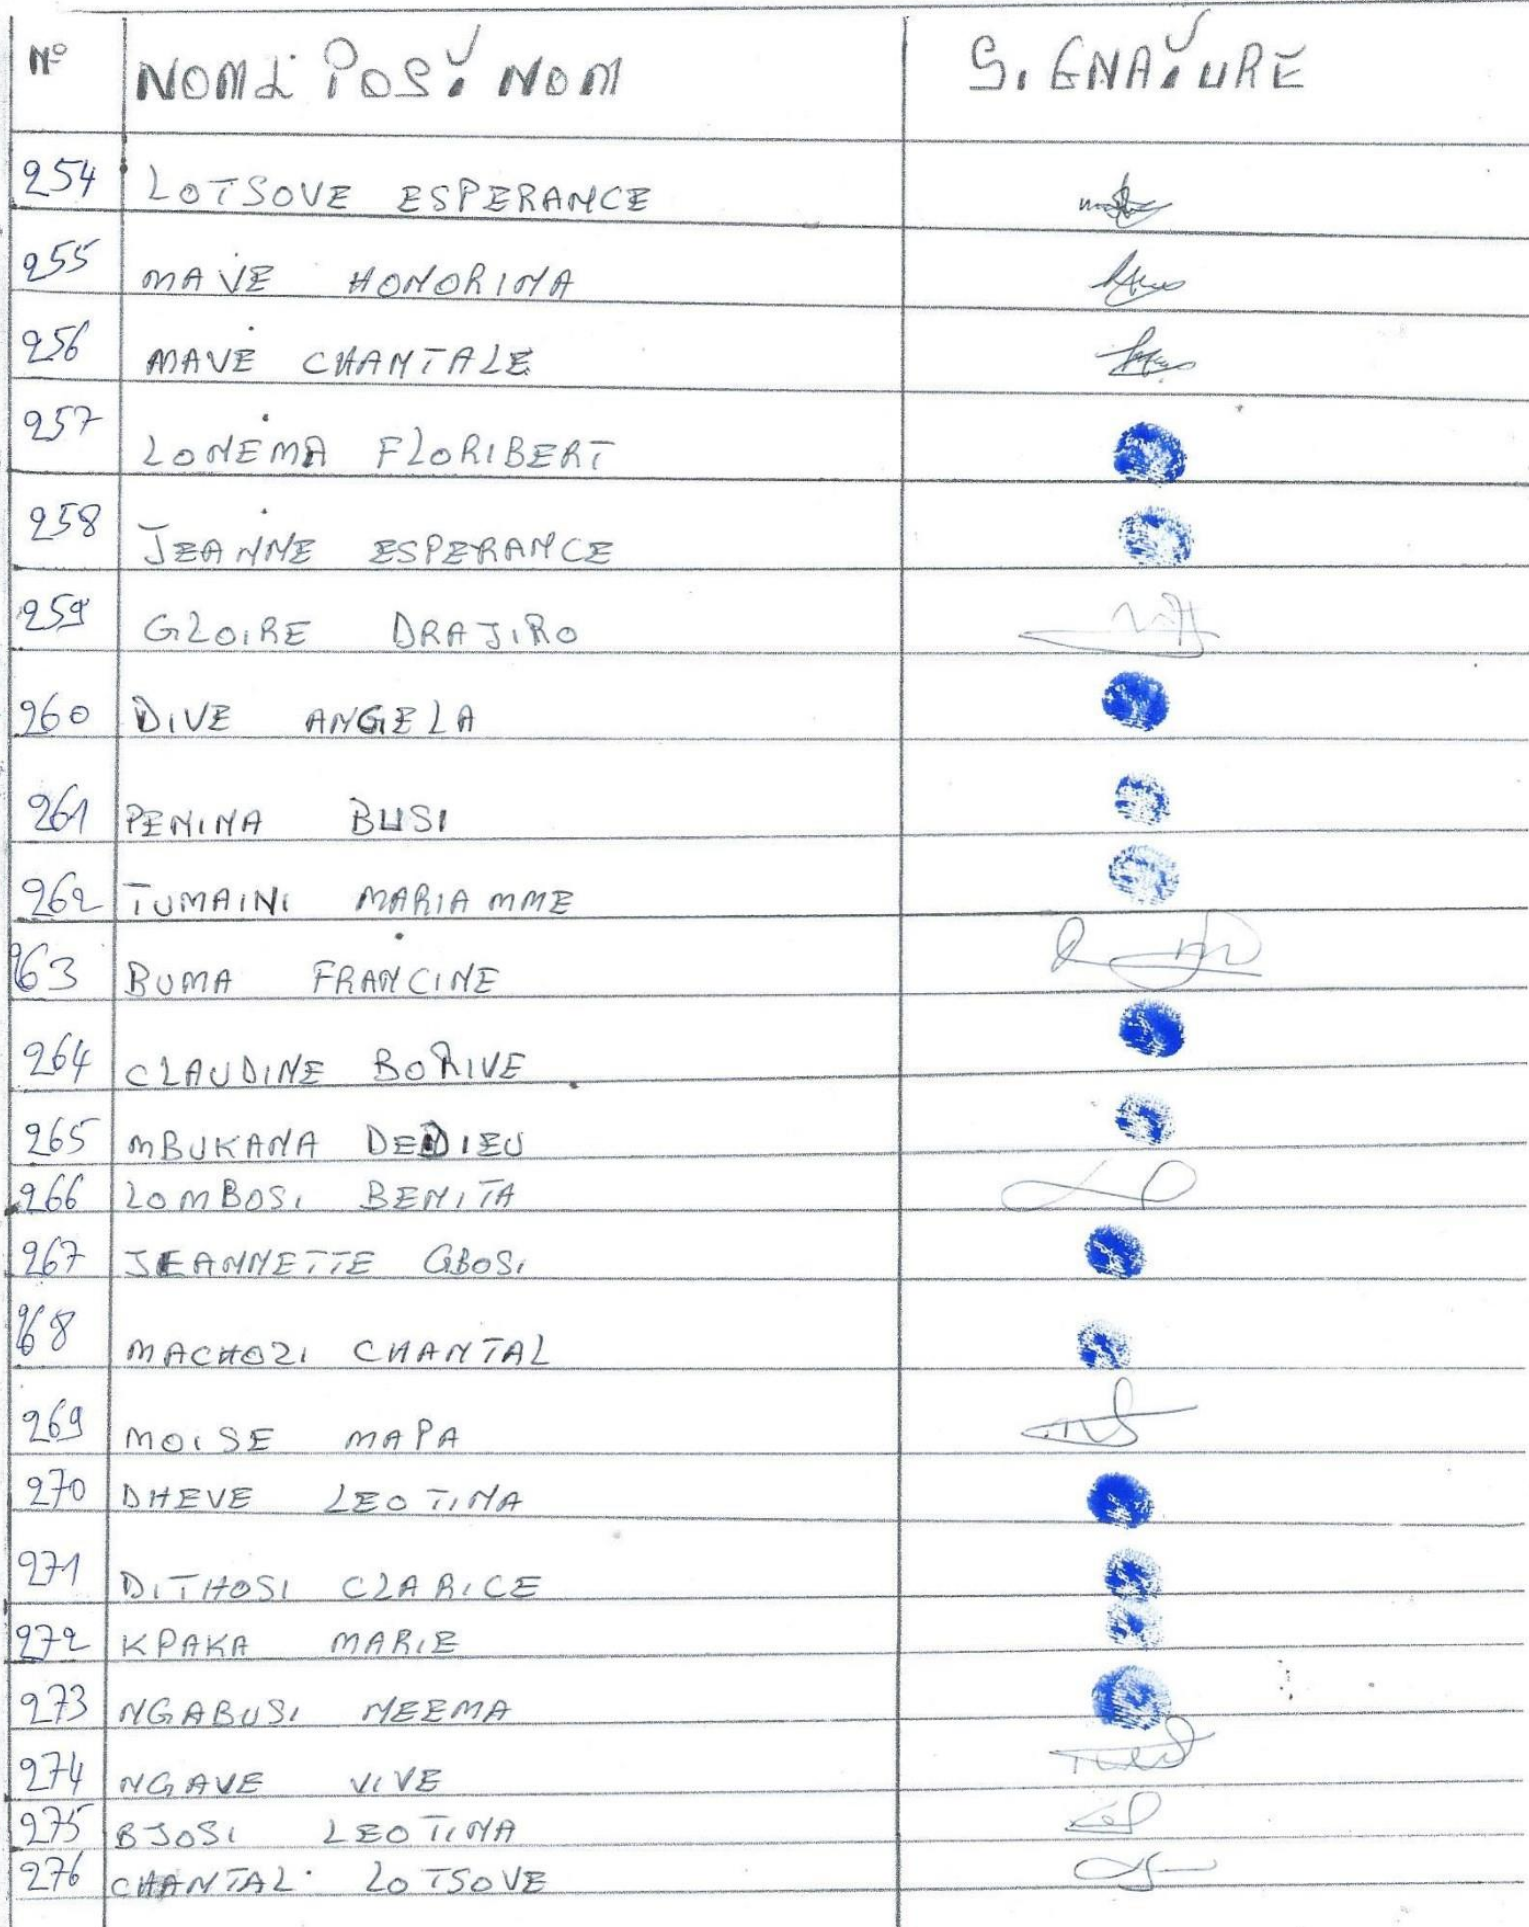 N° NOM & POST NOM SIGNATURE
254 LOTSOVE ESPERANCE
255 MAVE HONORINA
256 MAVE CHANTALE
257 LONEMA FLORIBERT
258 JEANNE ESPERANCE
259 GLOIRE DRAJIRO
260 DIVE ANGELA
261 PENINA BUSI
262 TUMAINI MARIA MME
263 BUMA FRANCINE
264 CLAUDINE BORIVE
265 MBUKANA DEDIEU
266 LOMBOSI BENITA
267 JEANNETTE GBOSI
268 MACHOZI CHANTAL
269 MOISE MAPA
270 DHEVE LEOTINA
271 DITHOSI CLARICE
272 KPAKA MARIE
273 NGABUSI NEEMA
274 NGAVE VIVE
275 BJOSI LEOTINA
276 CHANTAL LOTSOVE